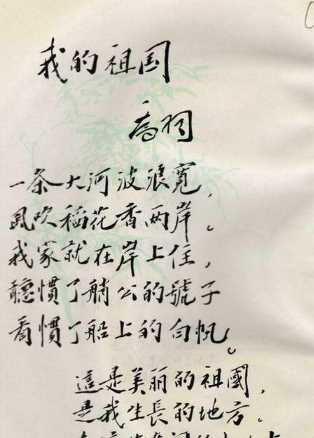 我的祖国
乔羽
一条大河波浪寬，
風吹稻花香兩岸。
我家就在岸上住，
聽慣了艄公的號子
看慣了船上的白帆。
這是美丽的祖國，
是我生長的地方。